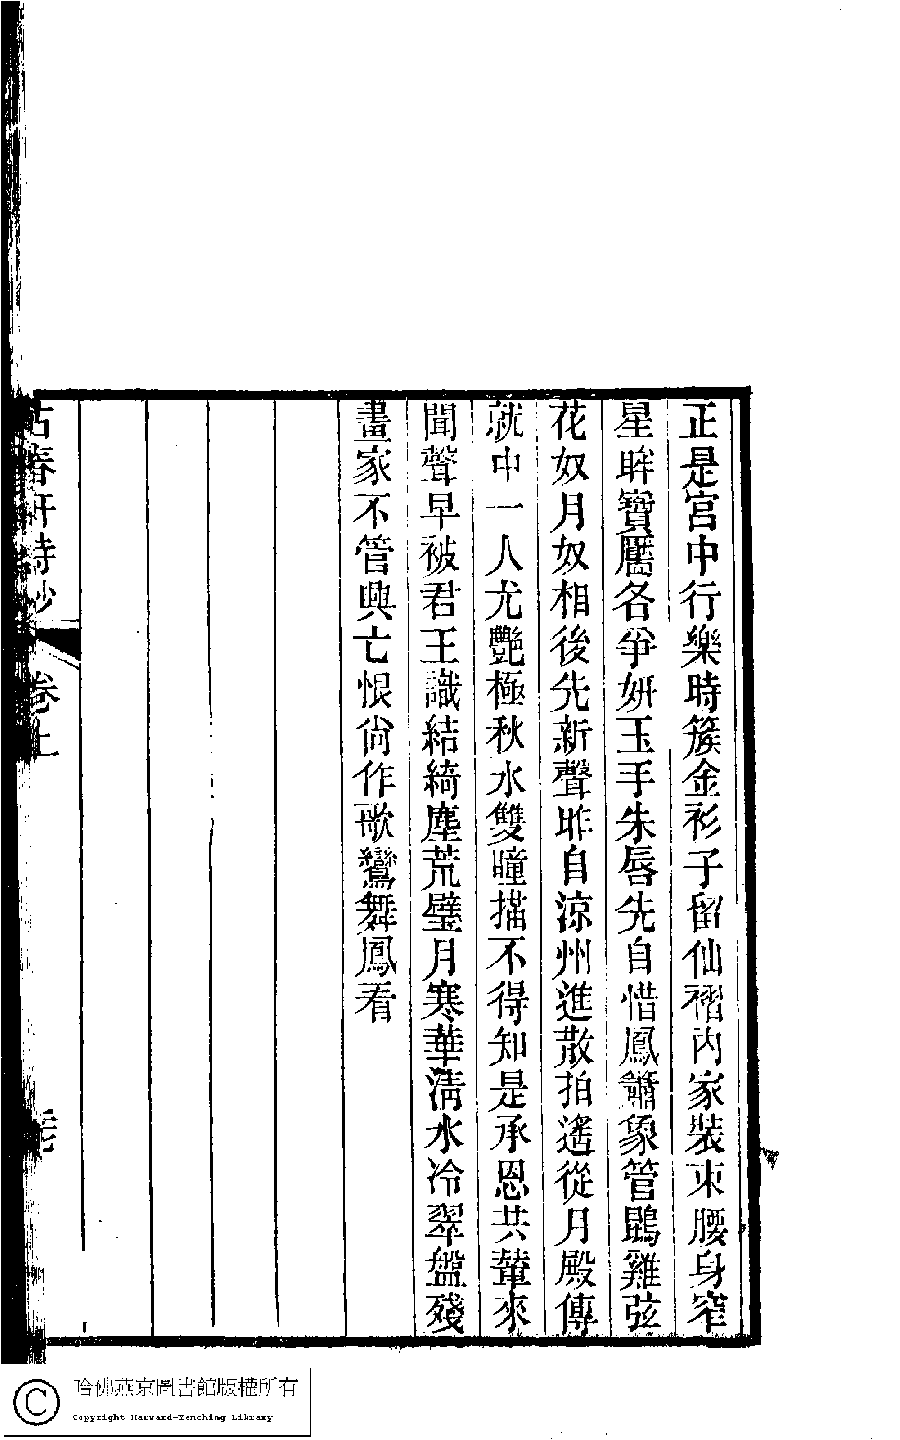 正是宮中行樂時簇金衫子留仙褶內家裝束腰身窄
星眸寶靨各爭妍玉手朱唇先自惜鳳簫象管鵾雞弦
花奴月奴相後先新聲昨自涼州進散拍遙從月殿傳
就中一人尤艷極秋水雙瞳描不得知是承恩共輦來
聞聲早被君王識結綺塵荒璧月寒華淸水冷翠盤殘
畫家不管興亡恨尙作歌鸞舞鳳看
古春軒詩鈔
卷上
哈佛燕京圖書館版權所有
Copyright Harvard-Yenching Library